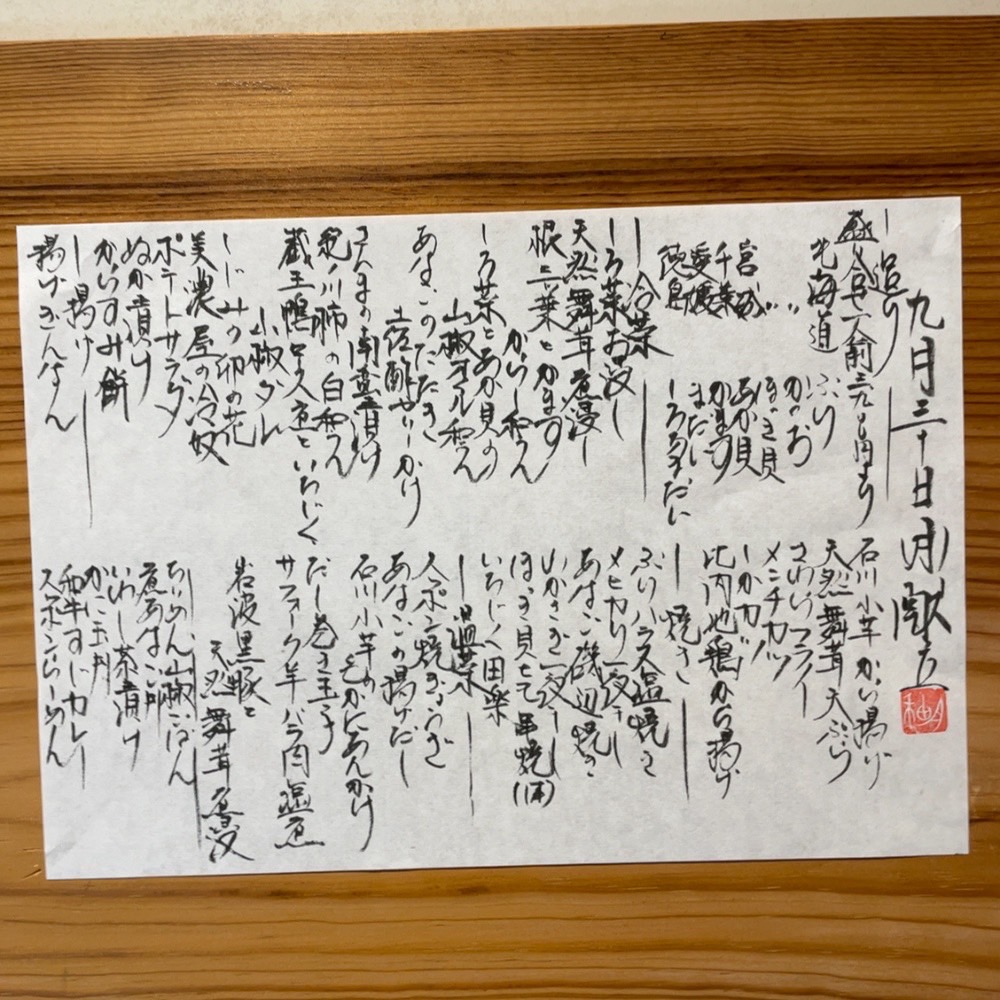 九月三十日
造り
盛り合せ一人前
北海道 ぶり
〃 かつお
〃 ほっき貝
宮城 あか貝
千葉 かます
愛媛 まだい
徳島 しろあまだい
冷菜
しろ菜お浸し
天然舞茸煮浸し
根三つ葉とかます
からし和え
しろ菜とあか貝の
山椒オイル和え
あなごのたたき
土佐酢ゼリーかけ
さんまの南蛮漬け
紀ノ川柿の白和え
蔵王鴨ロース煮といちじく
小椒ダレ
しじみの卯の花
美濃屋の冷奴
ポテトサラダ
ぬか漬け
からすみ餅
揚げ
揚げぎんなん
石川小芋から揚げ
天然舞茸天ぷら
さわらフライ
メンチカツ
いかカツ
比内地鶏から揚げ
焼き
ぶりハラス塩焼き
メヒカリ一夜干し
あなご磯辺焼き
いかさき一夜干し
ほっき貝ひも串焼(1本)
いちじく田楽
温菜
スッポン焼きぎょうざ
あなごの揚げだし
石川小芋の
毛がにあんかけ
だし巻き玉子
サフォーク羊バラ肉塩煮
岩波黒豚と
天然舞茸煮浸
ちりめん山椒ごはん
煮あなご丼
いわし茶漬け
からすみ丼
和牛すじカレー
スッポンらーめん